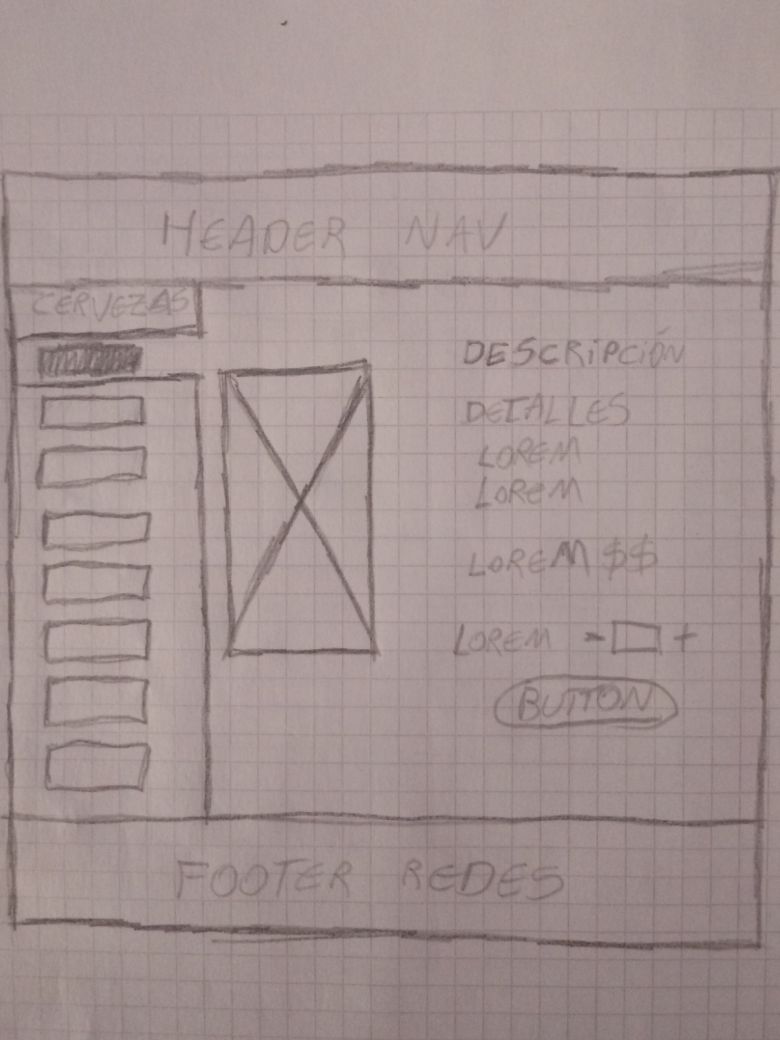 HEADER NAV
CERVEZAS
DESCRIPCIÓN
DETALLES
LOREM
LOREM
LOREM $$
LOREM - +
BUTTON
FOOTER REDES